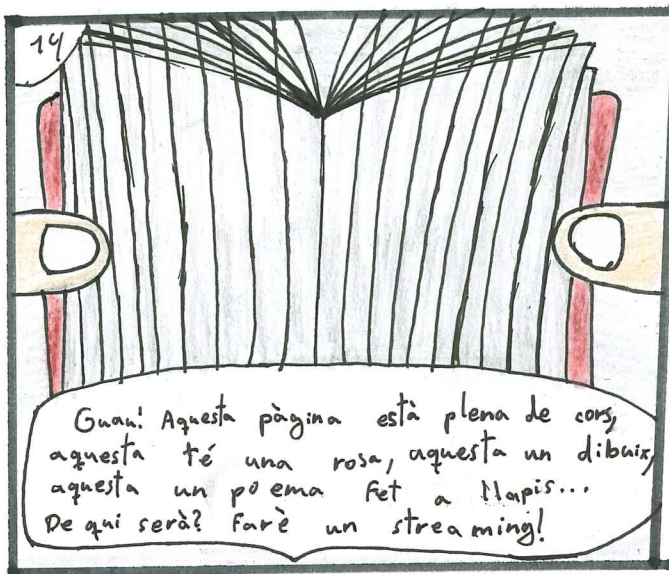 14
Guau! Aquesta pàgina està plena de cors,
aquesta té una rosa, aquesta un dibuix,
aquesta un poema fet a llapis...
De qui serà? Farè un streaming!